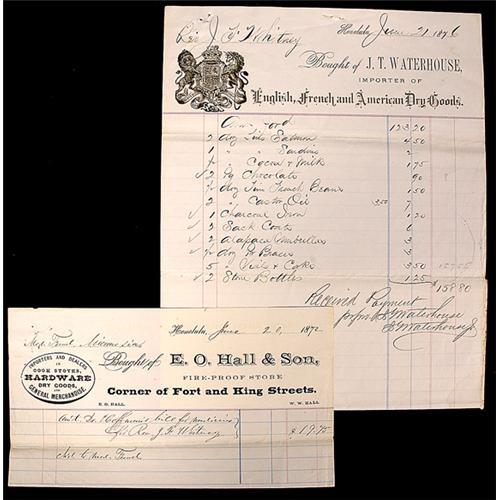 Rev J. F. Whitney Honolulu June 21 1876
Bought of J. T. WATERHOUSE,
IMPORTER OF
English, French and American Dry Goods.
1 23 20
2 doz Tins Salmon 4 50
1 " " Sardins 2
" Cocoa & Milk 1 75
2 lb Chocolate 90
doz Tins French Beans 1 50
" Castor Oil 3 50
1 Charcoal Iron 1 20
2 Sack Coats 6
2 Alapaca Umbrellas
doz pr Braces
5 3 50
2 Stone Bottles 1 25
$158 80
Received Payment
J. T. Waterhouse
Honolulu, June 20, 1872
Bought of E. O. Hall & Son,
FIRE-PROOF STORE
Corner of Fort and King Streets.
E. O. HALL. W. W. HALL.
IMPORTERS AND DEALERS
IN
COOK STOVES,
HARDWARE
DRY GOODS,
AND
GENERAL MERCHANDISE
Am't Dr. Hoffman's bill for medicines
for Rev. J. F. Whitney $19.75